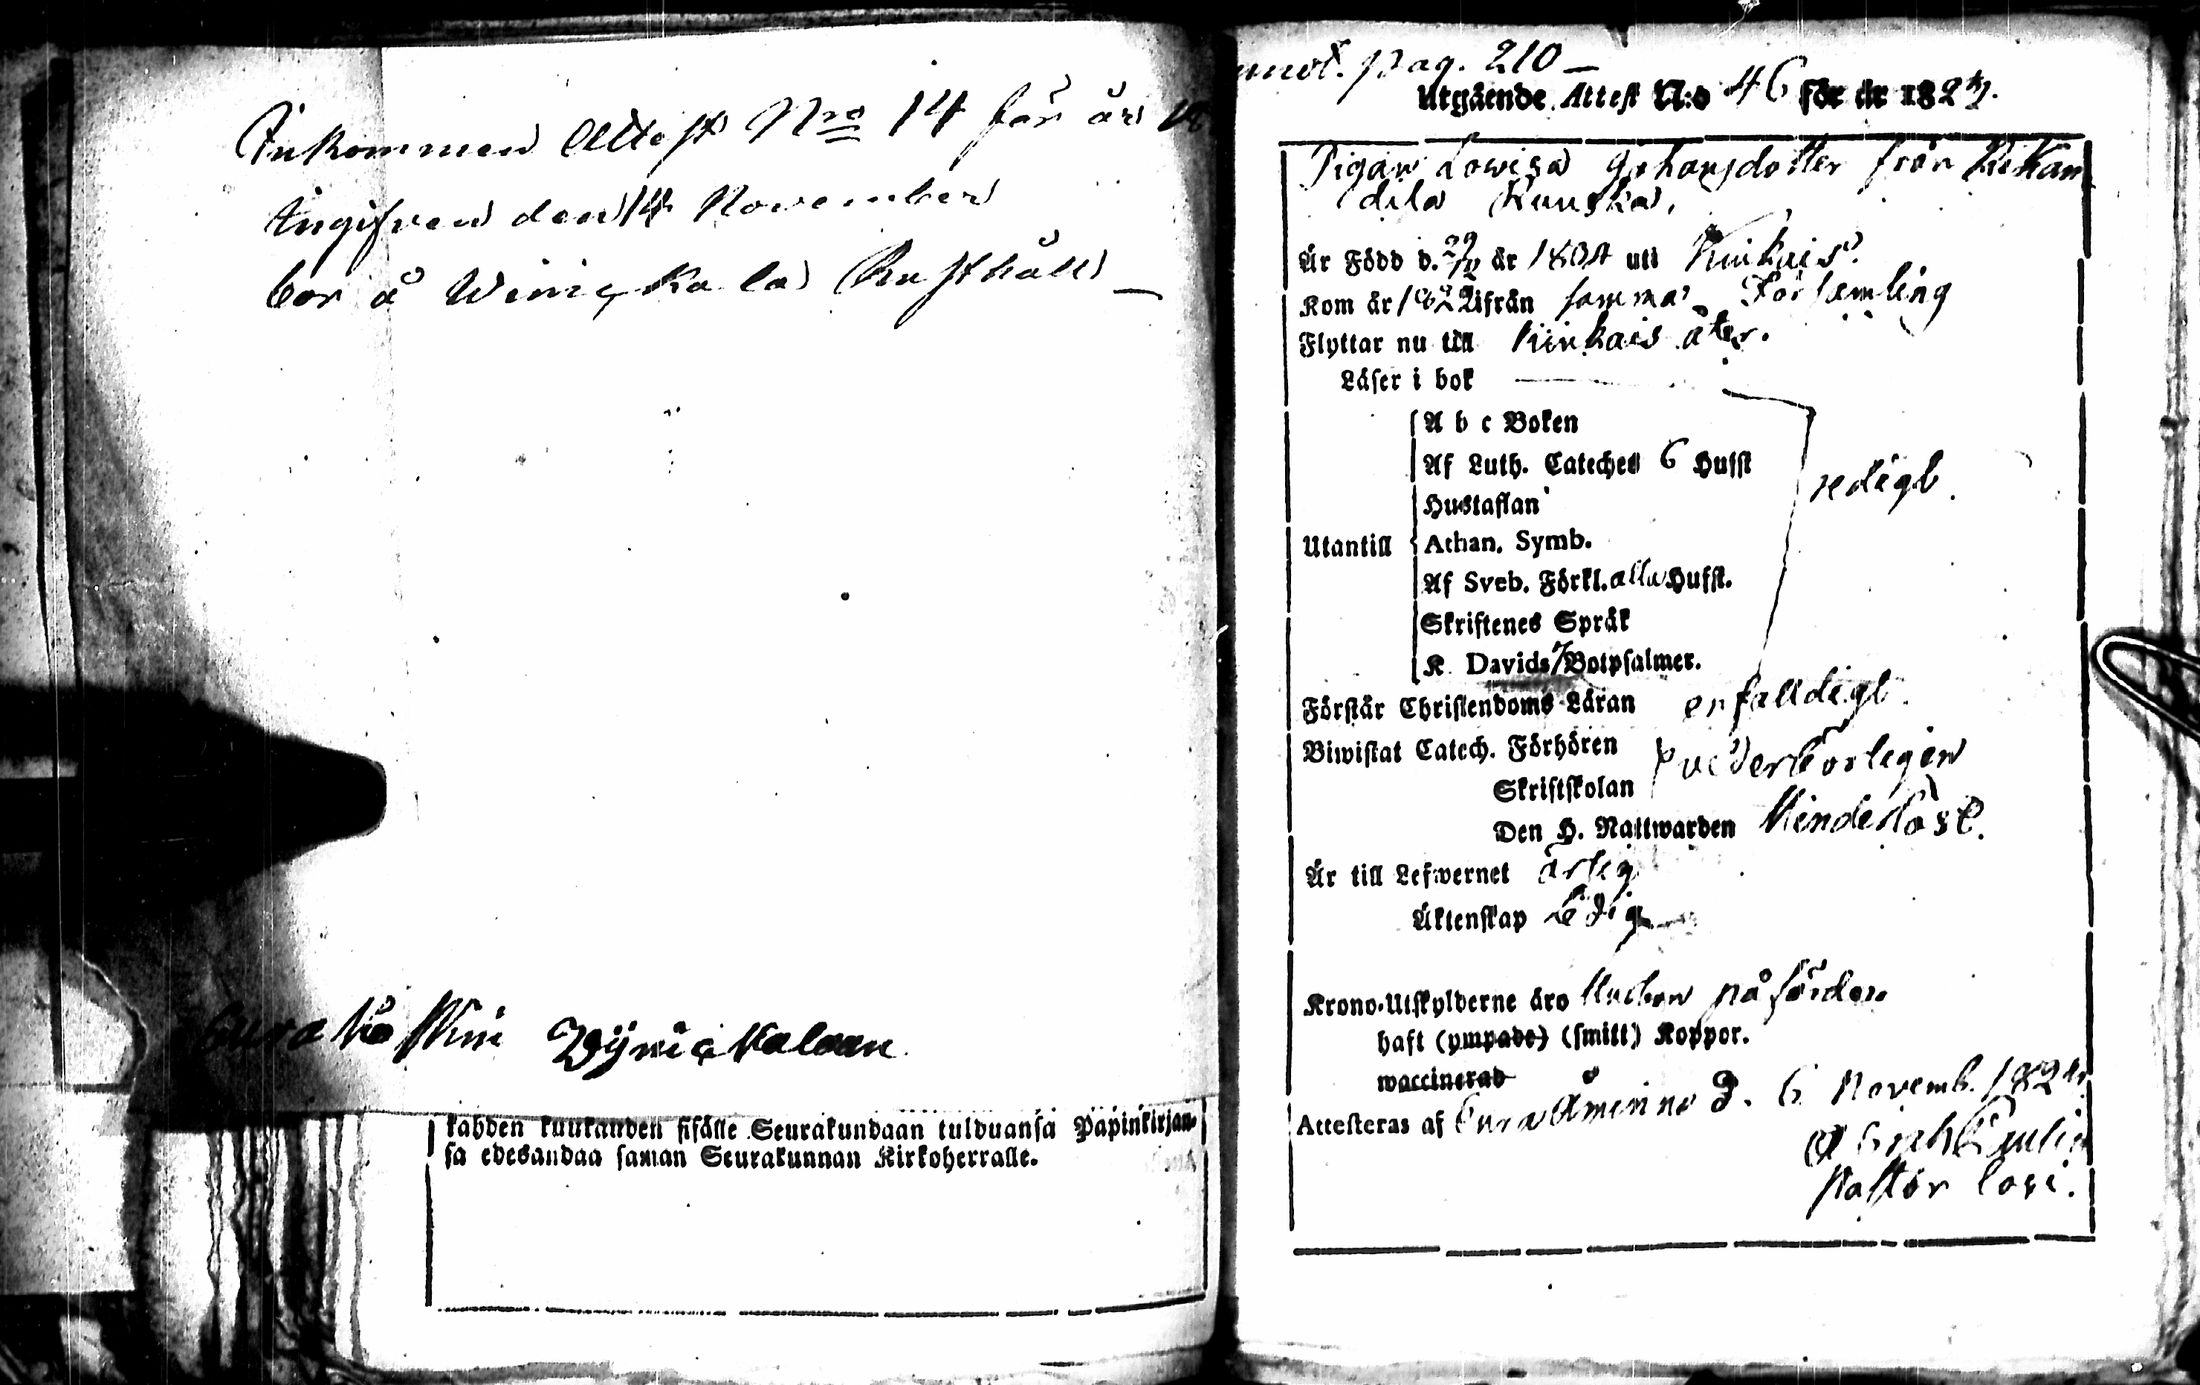 Inkommen Attest Nro 14 för år 18
Ingifven den 14 November
bor å Wiirickala Rusthåll —
Wijrickalaan
kahden kuukauden sisälle Seurakundaan tulduansa Papinkirjan-
sa edesandaa saman Seurakunnan Kirkoherralle.
annot. pag. 210 —
Utgående Attest N:o 46 för år 182
Pigan Lowisa Johansdotter från
Är Född d. år 180 uti Kiikais
Kom år 182 ifrån samma Församling
Flyttar nu till Kiikais åter.
Läser i bok
A b c Boken
Af Luth. Cateches 6 Hufst
redigt.
Hustaflan
Utantill Athan. Symb.
Af Sveb. Förkl. alla Hufst.
Skriftenes Språk
K. Davids 7 Botpsalmer.
Förstår Christendoms Läran enfalldigt.
Biwistat Catech. Förhören
vederbörligen
Skriftskolan
Den H. Nattwarden
Är till Lefwernet ärlig
Äktenskap Ledig
Krono-Utskylderne äro på förda
haft (ympade) (smitt) Koppor.
waccinerad
Attesteras af Eura Åminne d. 6 Novemb. 182
Pastor Loci.